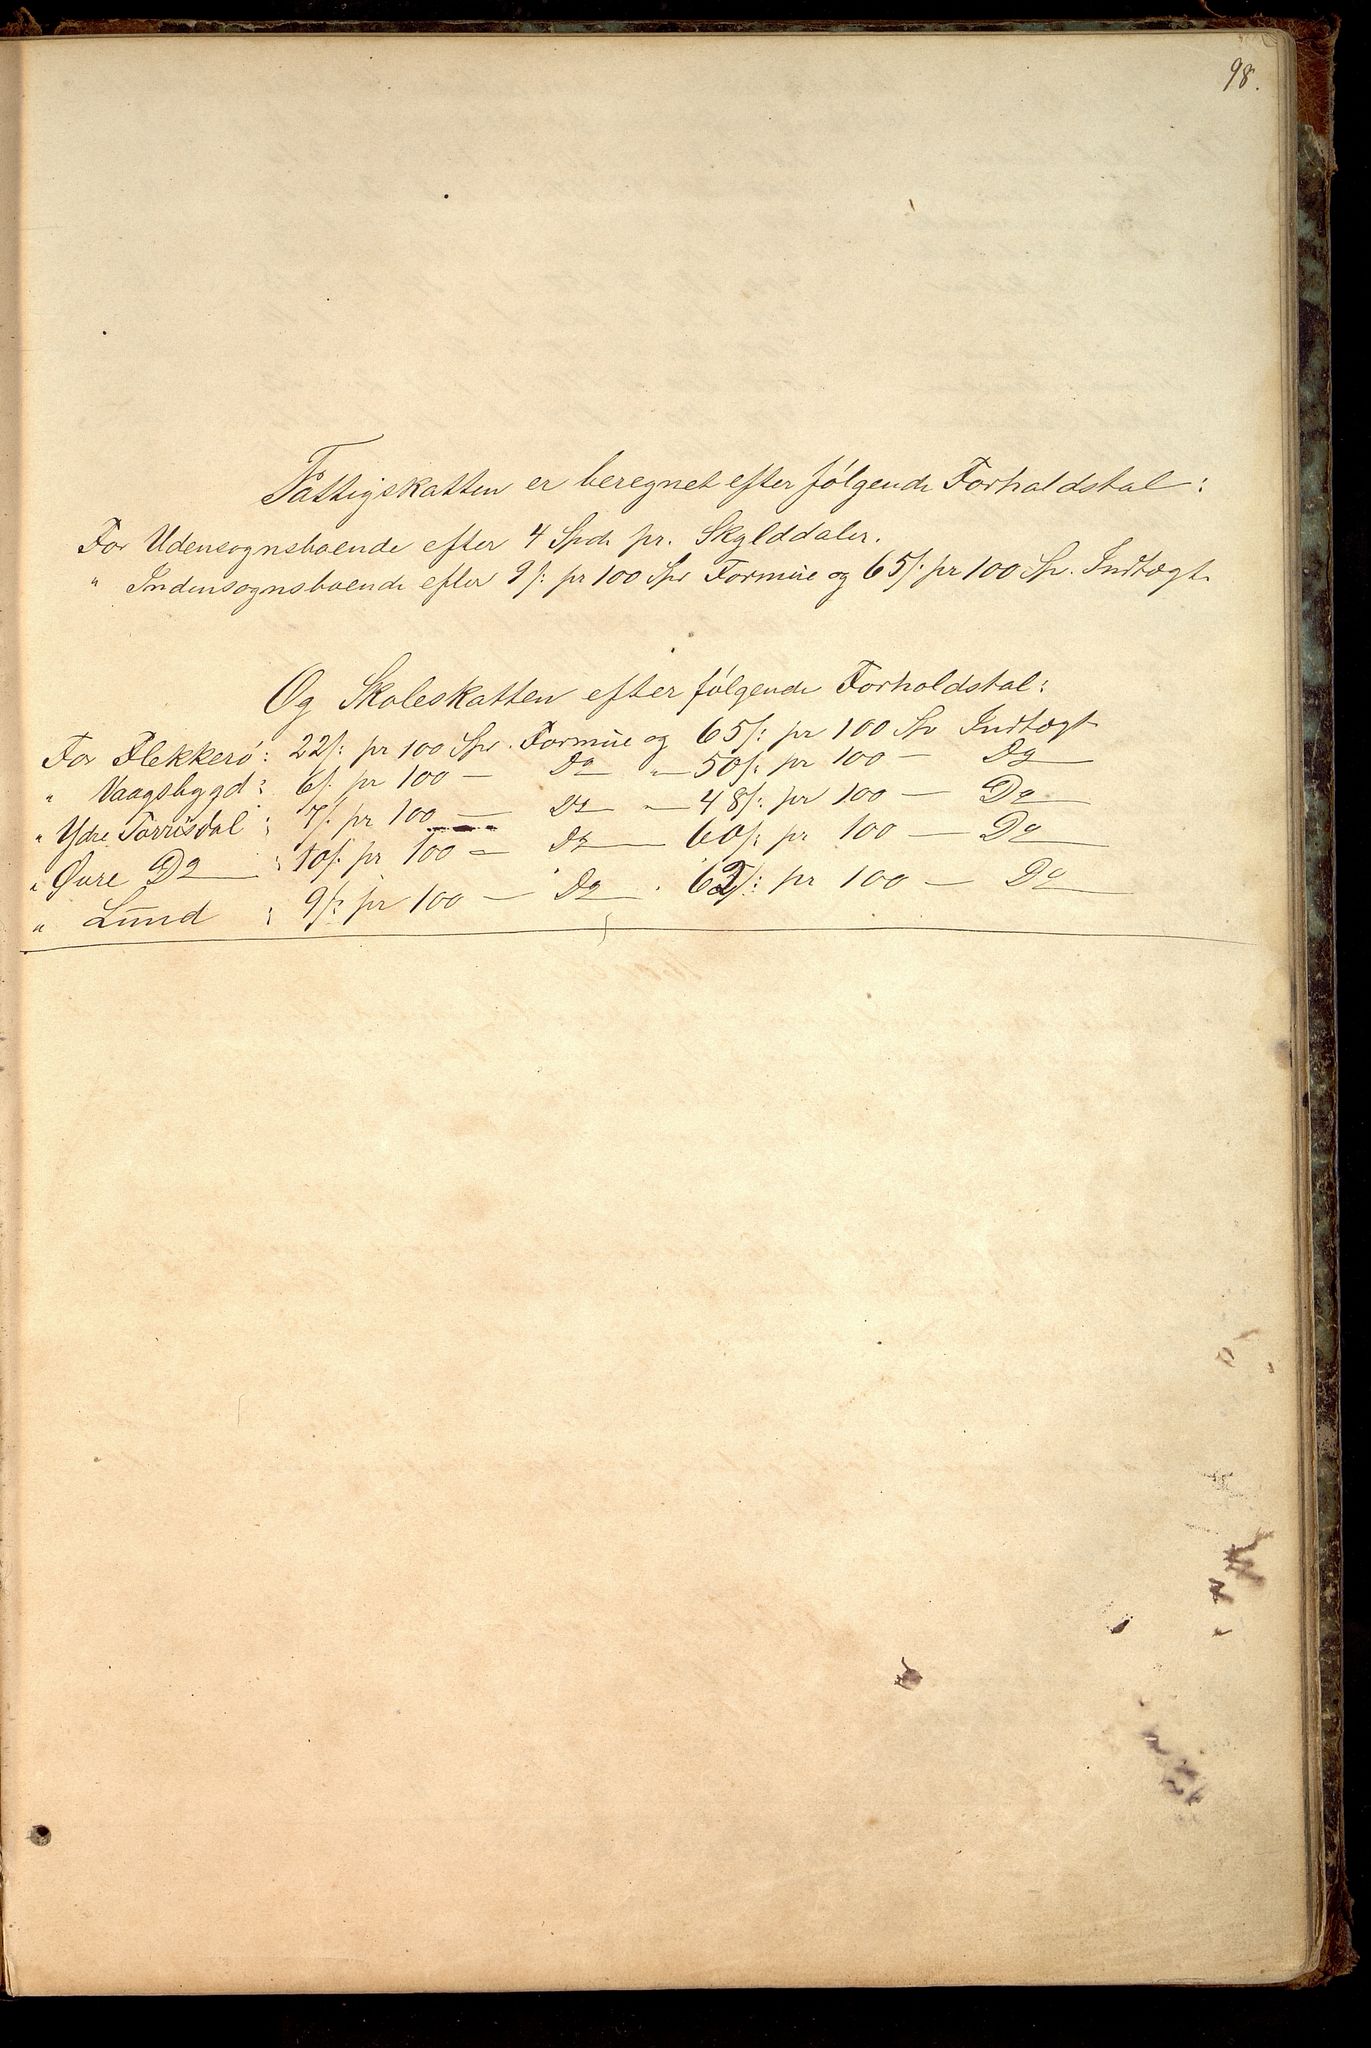 98.
Fattigskatten er beregnet efter følgende Forholdstal:
For Udensognsboende efter 4 Spd. pr. Skylddaler.
" Indensognsboende efter 9 /: pr 100 Spr Formue og 65 /: pr 100 Sp. Indtægt
Og Skoleskatten efter følgende Forholdstal:
For Flekkerø: 22 /: pr 100 Spr. Formue og 65 /: pr 100 Sp Indtægt
" Vaagsbygd: 6 /: pr 100 — Do " 50 /: pr 100 — Do
" Ydre Torrisdal: 7 /: pr 100 — Do " 48 /: pr 100 — Do
" Øvre Do : 10 /: pr 100 — Do — 60 /: pr 100 — Do
" Lund : 9 /: pr 100 — Do " 62 /: pr 100 — Do